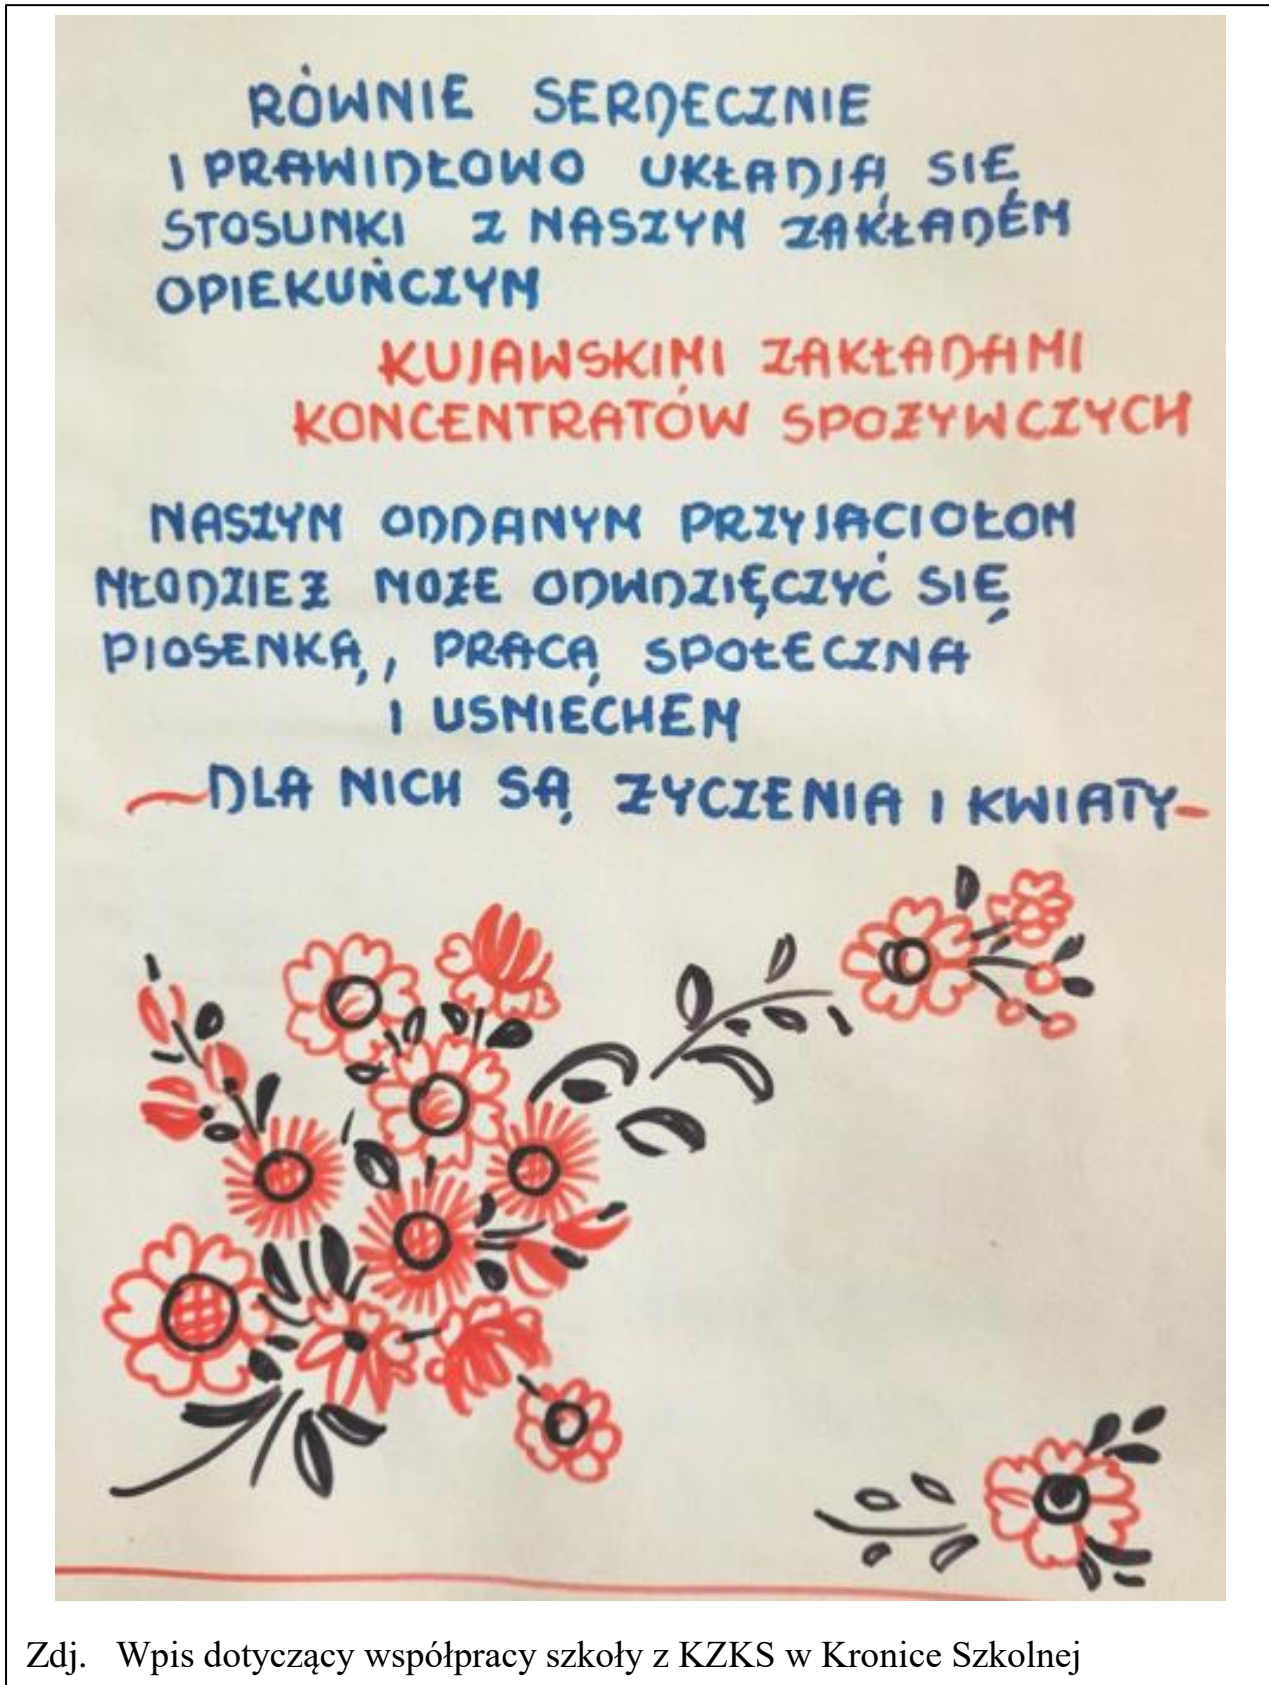 RÓWNIE SERDECZNIE
I PRAWIDŁOWO UKŁADJĄ SIĘ
STOSUNKI Z NASZYM ZAKŁADEM
OPIEKUŃCZYM
KUJAWSKIMI ZAKŁADAMI
KONCENTRATÓW SPOŻYWCZYCH
NASZYM ODDANYM PRZYJACIOŁOM
MŁODZIEŻ MOŻE ODWDZIĘCZYĆ SIĘ
PIOSENKĄ, PRACĄ SPOŁECZNA
I USMIECHEM
—DLA NICH SĄ ZYCZENIA I KWIATY-
Zdj. Wpis dotyczący współpracy szkoły z KZKS w Kronice Szkolnej